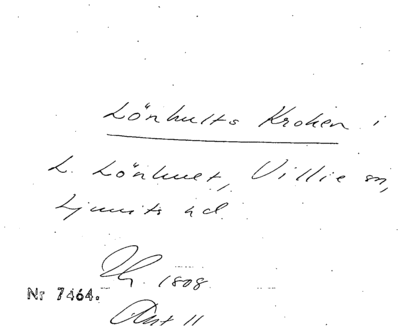 Lönhults Kroken i
L. Lönhult, Villie sn,
Ljunits hd.
Th. 1808
Nr 7464.
Ant 11